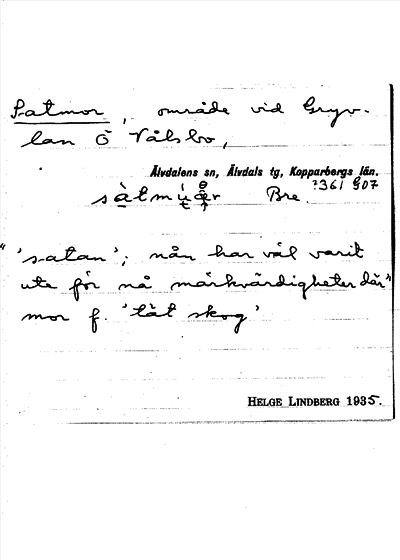 Satmor, område vid Gryv-
lan Ö Vålsbo,
Älvdalens sn, Älvdals tg, Kopparbergs län.
?361 907
Bre
"'satan'; nån har väl varit
ute för nå märkvärdigheter där"
mor f. 'tät skog'
HELGE LINDBERG 1935.